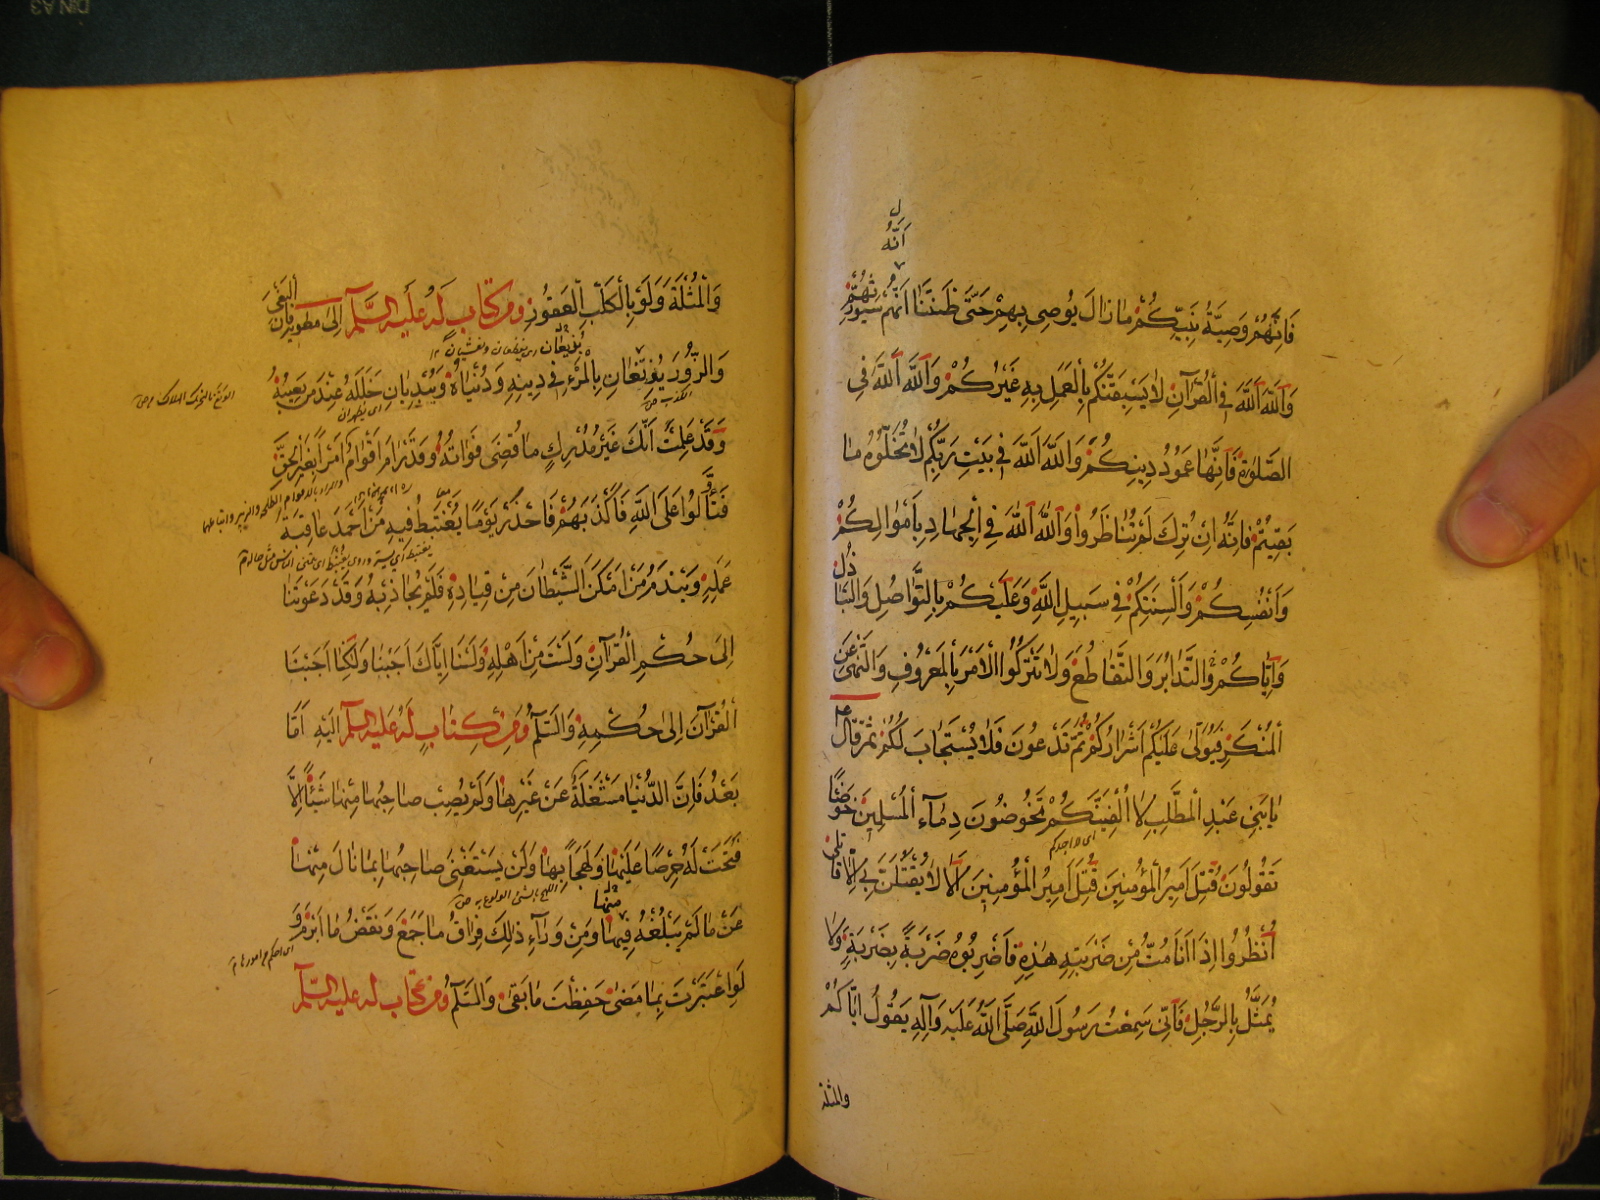 أَنَّهُ
فَإِنَّهُمْ وَصِيَّةُ نَبِيِّكُمْ مَا زَالَ يُوصِي بِهِمْ حَتَّى ظَنَنَّا أَنَّهُمْ سَيُورِثُهُمْ
وَاللَّهَ اللَّهَ فِي الْقُرْآنِ لَا يَسْبِقَنَّكُمْ بِالْعَمَلِ بِهِ غَيْرُكُمْ وَاللَّهَ اللَّهَ فِي
الصَّلٰوةِ فَإِنَّهَا عَمُودُ دِينِكُمْ وَاللَّهَ اللَّهَ فِي بَيْتِ رَبِّكُمْ لَا تُخَلُّوهُ مَا
بَقِيتُمْ فَإِنَّهُ إِنْ تُرِكَ لَمْ تُنَاظَرُوا وَاللَّهَ اللَّهَ فِي الْجِهَادِ بِأَمْوَالِكُمْ
وَأَنْفُسِكُمْ وَأَلْسِنَتِكُمْ فِي سَبِيلِ اللَّهِ وَعَلَيْكُمْ بِالتَّوَاصُلِ وَالتَّبَاذُلِ
وَإِيَّاكُمْ وَالتَّدَابُرَ وَالتَّقَاطُعَ وَلَا تَتْرُكُوا الْأَمْرَ بِالْمَعْرُوفِ وَالنَّهْيَ عَنِ
الْمُنْكَرِ فَيُوَلَّى عَلَيْكُمْ أَشْرَارُكُمْ ثُمَّ تَدْعُونَ فَلَا يُسْتَجَابَ لَكُمْ ثُمَّ قَالَ
يَا بَنِي عَبْدِ الْمُطَّلِبِ لَا أُلْفِيَنَّكُمْ تَخُوضُونَ دِمَاءَ الْمُسْلِمِينَ خَوْضًا
اى لا اجدكم
تَقُولُونَ قُتِلَ أَمِيرُ الْمُؤْمِنِينَ قُتِلَ أَمِيرُ الْمُؤْمِنِينَ أَلَا لَا يُقْتَلَنَّ بِي إِلَّا قَاتِلِي
أُنْظُرُوا إِذَا أَنَا مُتُّ مِنْ ضَرْبَتِهِ هٰذِهِ فَاضْرِبُوهُ ضَرْبَةً بِضَرْبَةٍ وَلَا
يُمَثَّلُ بِالرَّجُلِ فَإِنِّي سَمِعْتُ رَسُولَ اللَّهِ صَلَّى اللَّهُ عَلَيْهِ وَآلِهِ يَقُولُ إِيَّاكُمْ
والمثلة
وَالْمُثْلَةَ وَلَوْ بِالْكَلْبِ الْعَقُورِ وَمِنْ كِتَابٍ لَهُ عَلَيْهِ السَّلَمُ إِلَى مُعَوِيَةَ فَإِنَّ الْبَغْيَ
يُذِيعَانِ
وَالزُّورَ يُوتِغَانِ بِالْمَرْءِ فِي دِينِهِ وَدُنْيَاهُ وَيُبْدِيَانِ خَلَلَهُ عِنْدَ مَنْ يَعِيبُهُ
اى يظهران
وَقَدْ عَلِمْتُ أَنَّكَ غَيْرُ مُدْرِكٍ مَا قُضِيَ فَوَاتُهُ وَقَدْ رَامَ أَقْوَامٌ أَمْرًا بِغَيْرِ الْحَقِّ
فَتَأَلَّوْا عَلَى اللَّهِ فَأَكْذَبَهُمْ فَاحْذَرْ يَوْمًا يُغْتَبَطُ فِيهِ مَنْ أَحْمَدَ عَاقِبَةَ
عَمَلِهِ وَيَنْدَمُ مَنْ أَمْكَنَ الشَّيْطَانَ مِنْ قِيَادِهِ فَلَمْ يُجَاذِبْهُ وَقَدْ دَعَوْتَنَا
إِلَى حُكْمِ الْقُرْآنِ وَلَسْتَ مِنْ أَهْلِهِ وَلَسْنَا إِيَّاكَ أَجَبْنَا وَلٰكِنَّا أَجَبْنَا
الْقُرْآنَ إِلَى حُكْمِهِ وَالسَّلَمُ وَمِنْ كِتَابٍ لَهُ عَلَيْهِ السَّلَمُ إِلَيْهِ أَمَّا
بَعْدُ فَإِنَّ الدُّنْيَا مَشْغَلَةٌ عَنْ غَيْرِهَا وَلَمْ يُصِبْ صَاحِبُهَا مِنْهَا شَيْئًا إِلَّا
فَتَحَتْ لَهُ حِرْصًا عَلَيْهَا وَلَهَجًا بِهَا وَلَنْ يَسْتَغْنِيَ صَاحِبُهَا بِمَا نَالَ مِنْهَا
مِنْهَا
عَنْ مَا لَمْ يَبْلُغْهُ فِيهَا وَمِنْ وَرَاءِ ذٰلِكَ فِرَاقُ مَا جَمَعَ وَنَقْضُ مَا أَبْرَمَ وَ
لَوِ اعْتَبَرْتَ بِمَا مَضَى حَفِظْتَ مَا بَقِيَ وَالسَّلَمُ وَمِنْ كِتَابٍ لَهُ عَلَيْهِ السَّلَمُ